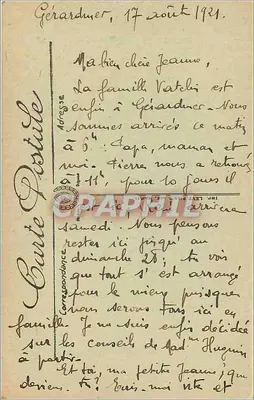 Gérardmer, 17 août 1921.
Ma bien chère Jeanne,
La famille Vatelin est
enfin à Gérardmer. Nous
sommes arrivés ce matin
à 6h : Papa, maman et
moi. Pierre nous a
à 11h, pour 10 jours il
arrivera
samedi. Nous pensons
rester ici jusqu'au
dimanche 28 ; tu vois
que tout s'est arrangé
pour le mieux puisque
nous serons tous ici en
famille. Je me suis enfin décidée
sur les conseils de Huguin
à partir.
Et toi, ma petite Jeanne, que
deviens-tu? Écris-moi vite et
Carte Postale
Adresse
Correspondance
CPAPHIL